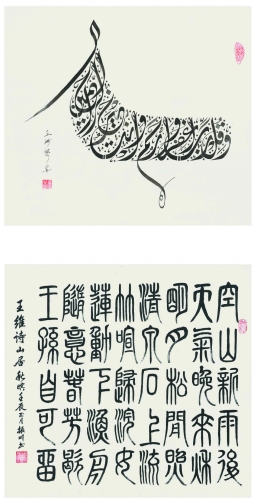 وقل رب اغفر وارحم وانت خير الراحمين
空山新雨後
天氣晚來秋
明月松間照
清泉石上流
竹喧歸浣女
蓮動下漁舟
隨意春芳歇
王孫自可留
王維詩山居秋暝壬辰